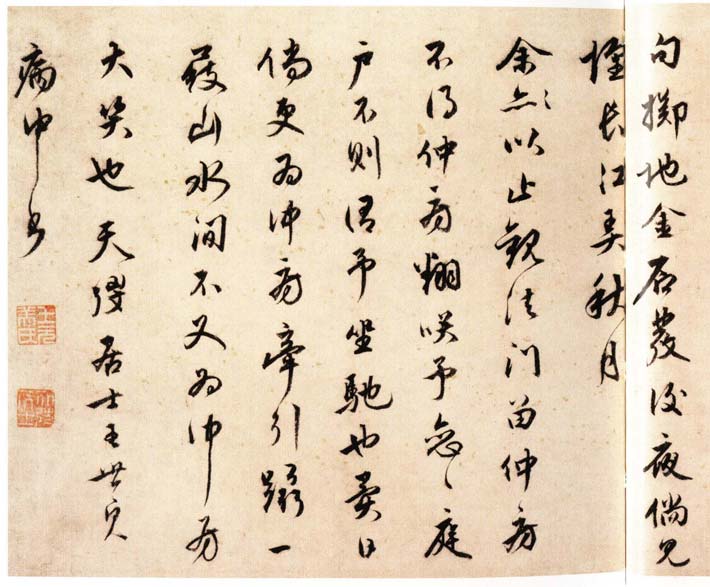 句擲地金石發後夜倘見
長江秋月
余以止觀法門留仲房
不得仲房翻咲予庭
戶不則謂予坐馳也異日
倘更為仲房牽引躡一
屐山水間不又為仲房
大笑也天弢居士王世貞
病中書